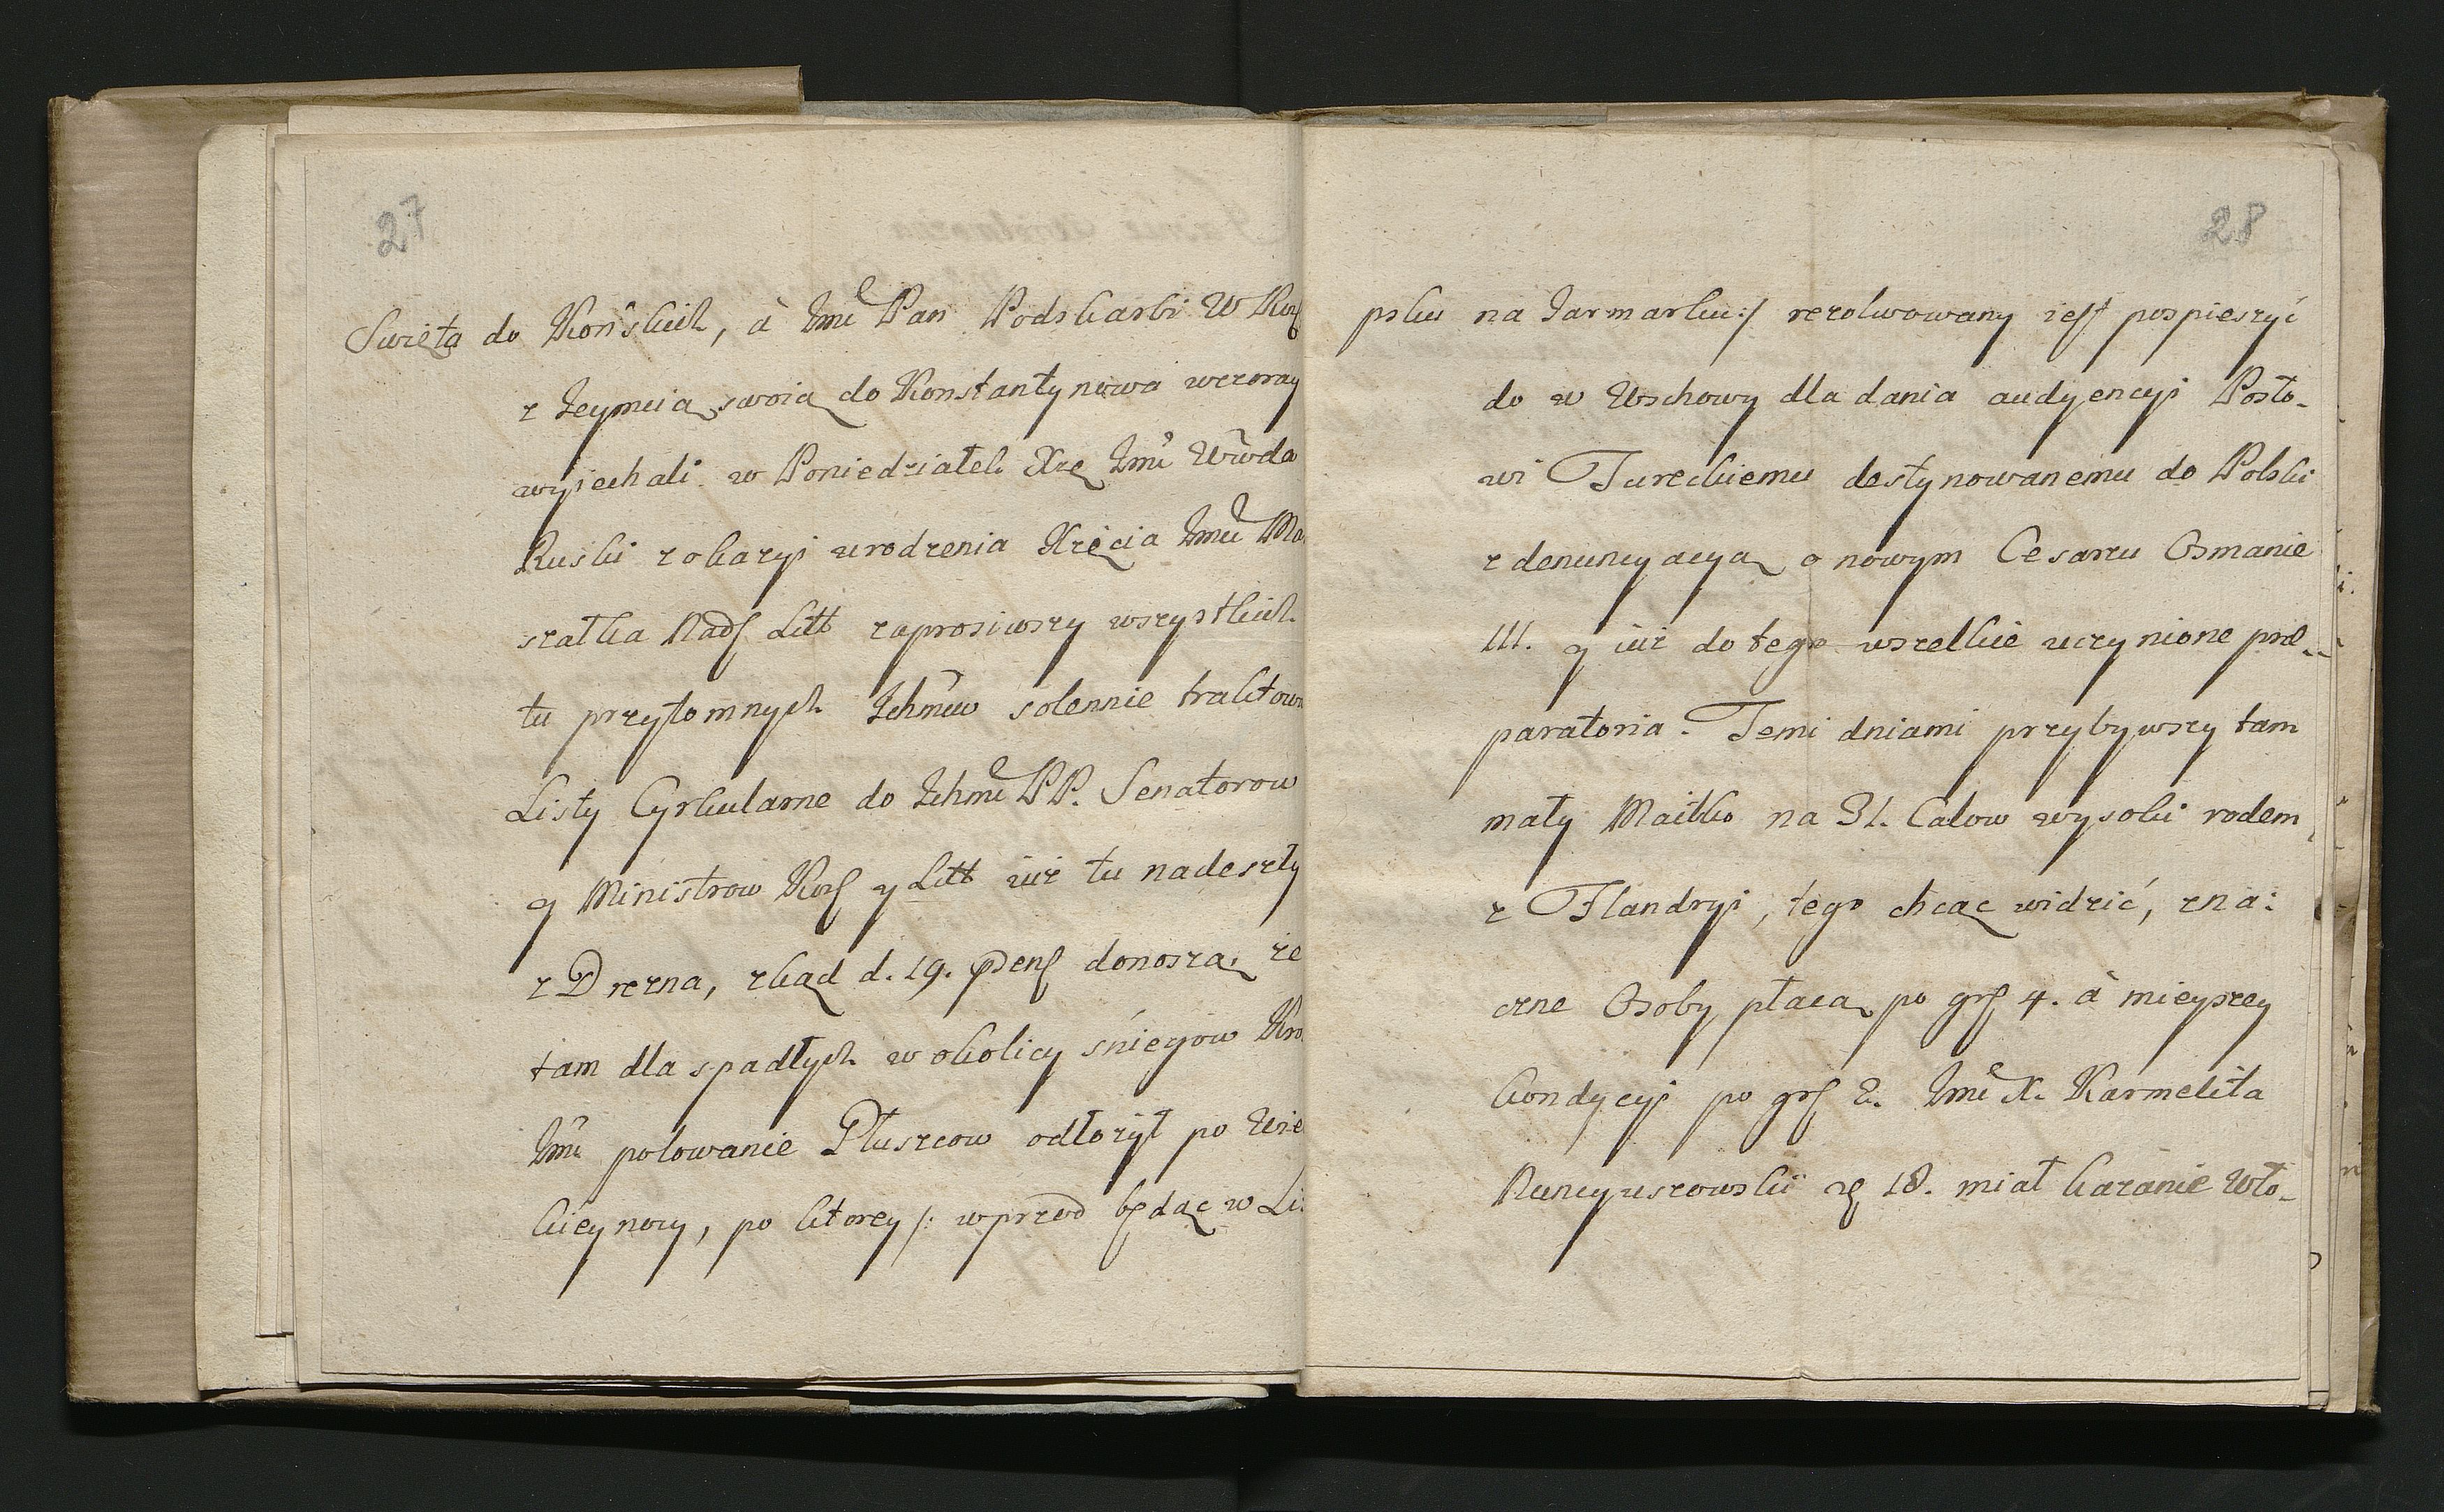 27
Swięta do Końskich, à Jmć Pan Podskarbi W Kor
z Jeymcią swoią do Konstantynowa wczoray
wyjechali. w Poniedziałek Xże Jmć Wwda
Ruski z okazyi urodzenia Xięcia Jmći Ma
szałka Nadf Litt zaprosiwszy wszystkich
tu przytomnych Ichmćw solennie traktow
Listy Cyrkularne do Ichmć PP. Senatorow
y Ministrow Kor y Litt iuż tu nadeszły
z Drezna, zkąd d. 19. praesenf donoszą, że
tam dla spadłych w okolicy śniegow Kro
Jmć polowanie Płuszcow odłożył po Wie
kieynocy, po ktorey /: wprzod będąc w Li
28
psku na Jarmarku :/ rezolwowany iest pospieszyć
do w Wschowy dla dania audyencyi Posło-
wi Tureckiemu destynowanemu do Polski
z denuncyacyą o nowym Cesarzu Osmanie
III. y iuż do tego wszelkie uczynione præ-
paratoria. Temi dniami przybywszy tam
mały na 31. Calow wysoki rodem
z Flandryi, tego chcąc widzić, zna:
czne Osoby płacą po grf 4. à mieyszey
kondycyi po grf 2. Jmć X. Karmelita
Runcyuszowski 18. miał kazanie Wło-